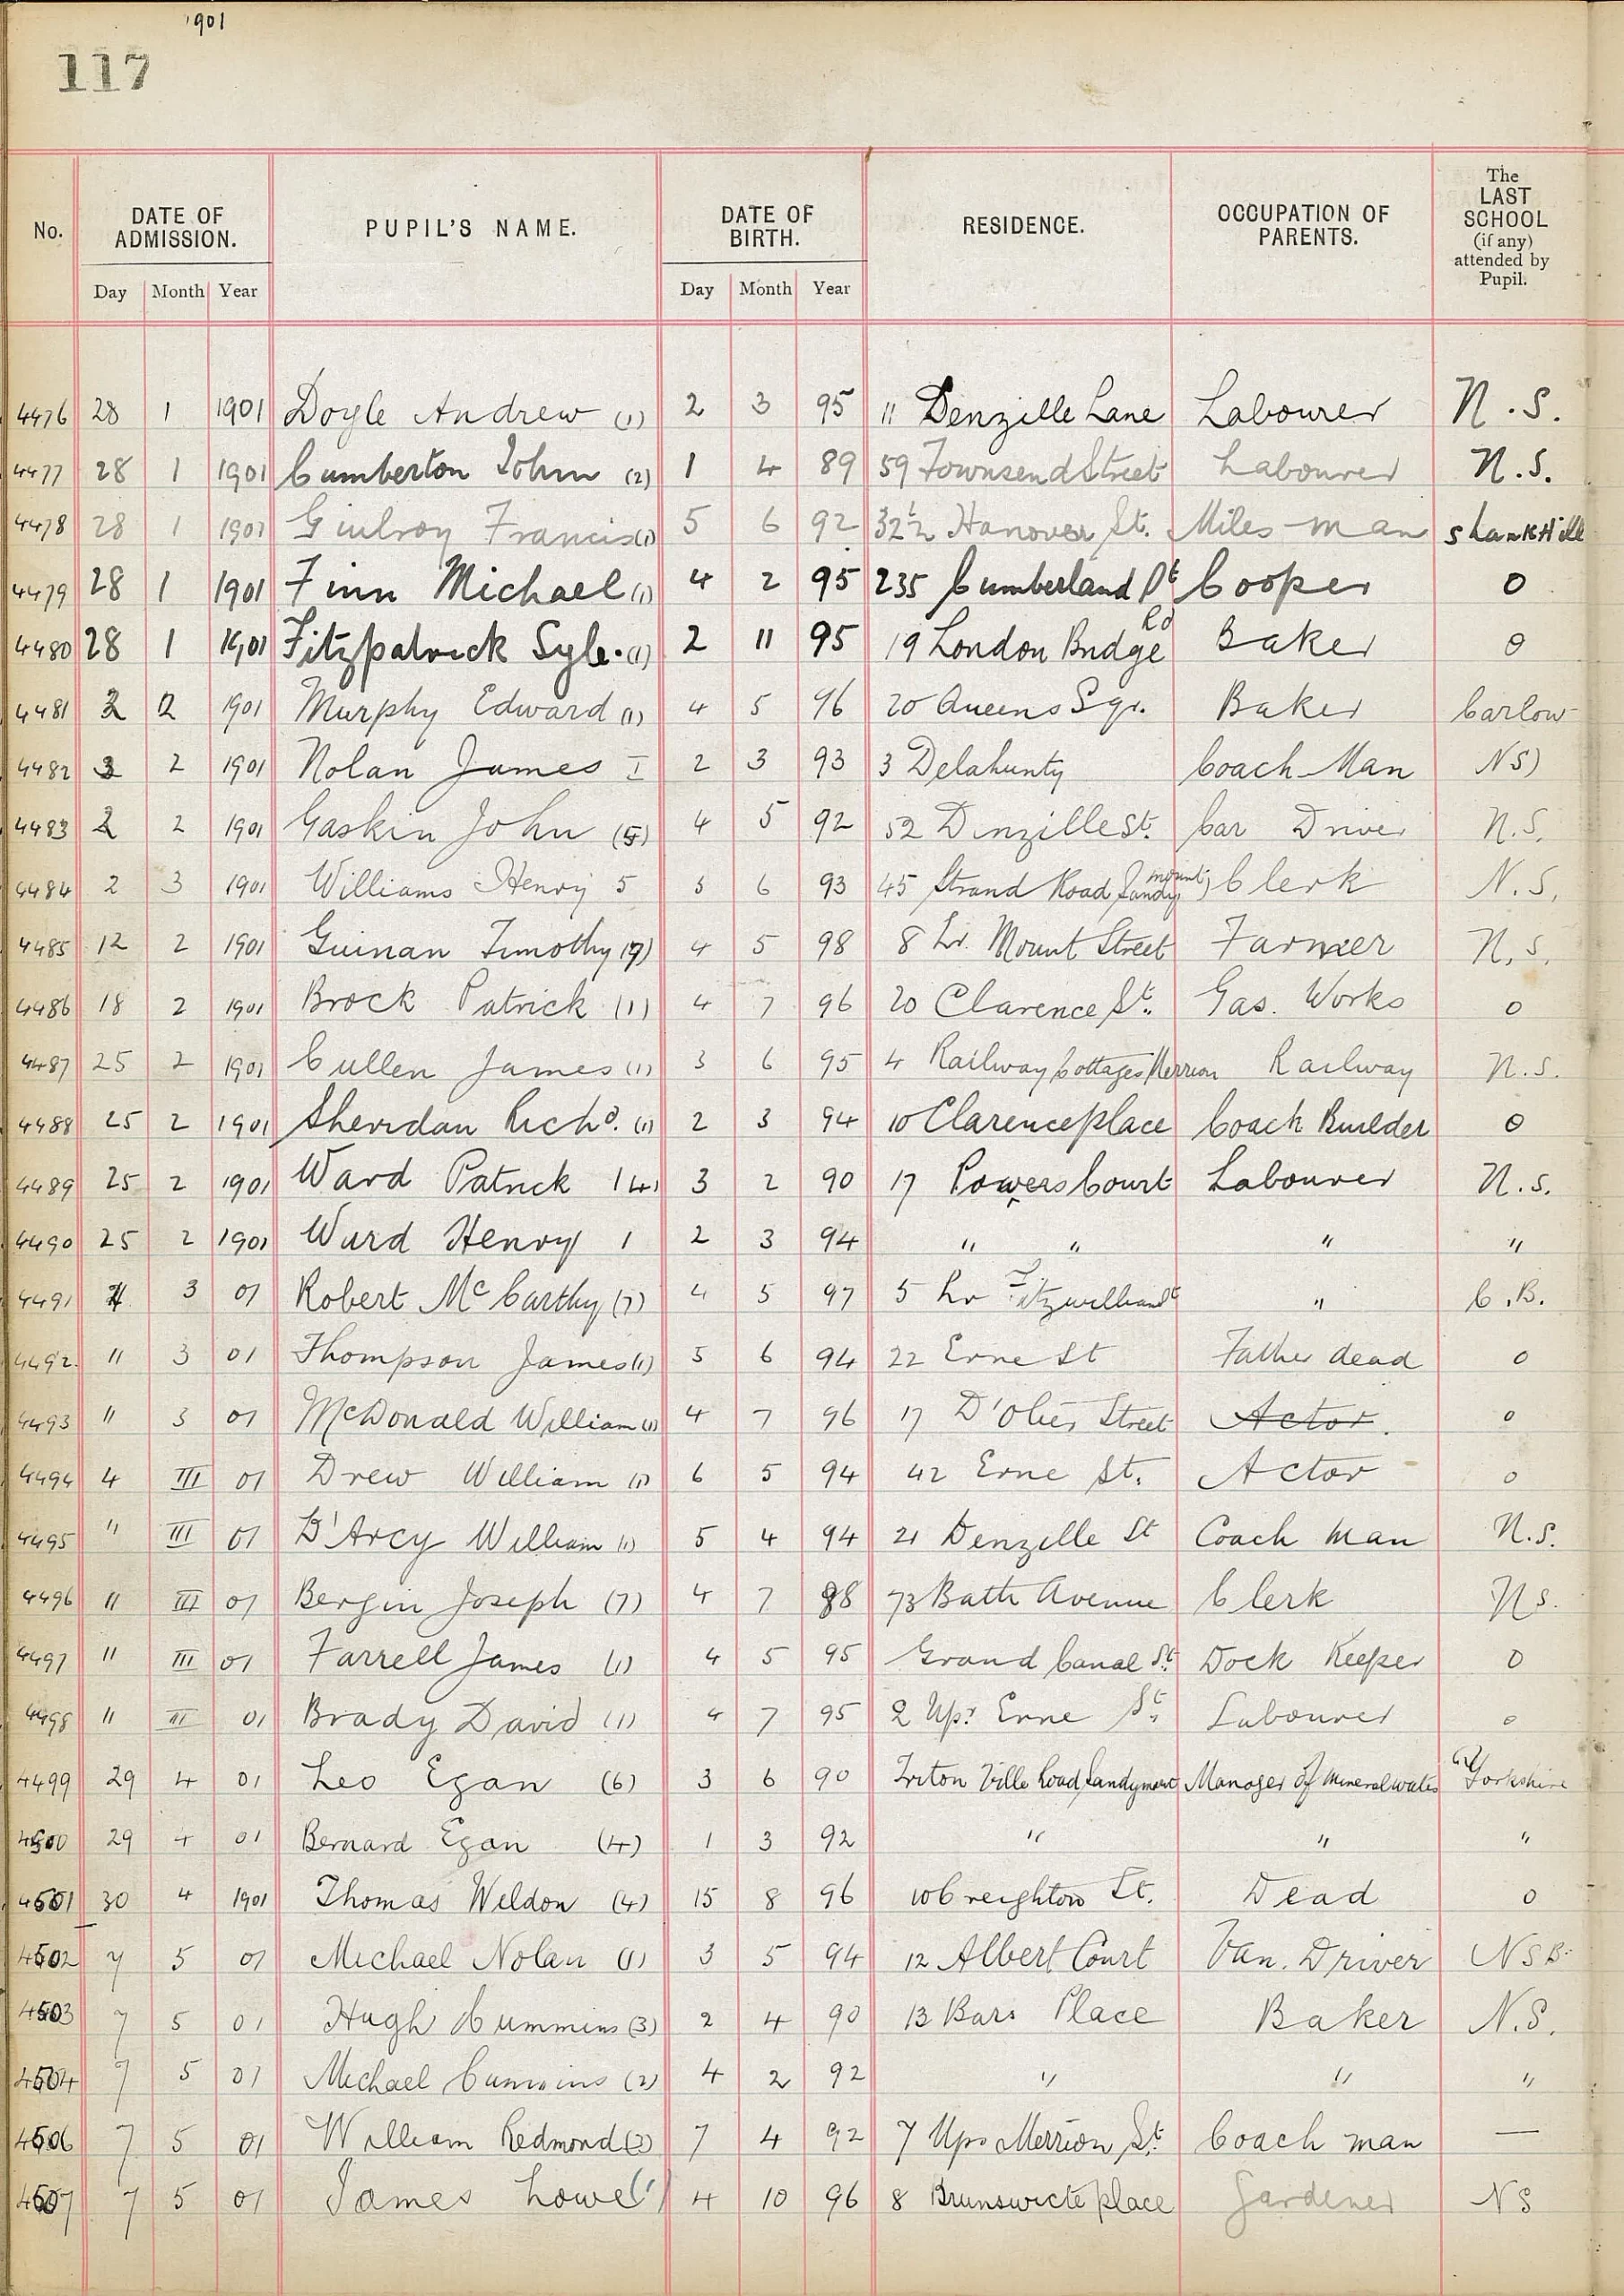 1901
117
No. DATE OF ADMISSION. PUPIL'S NAME. DATE OF BIRTH. RESIDENCE. OCCUPATION OF PARENTS. The LAST SCHOOL (if any) attended by Pupil.
Day Month Year Day Month Year
4476 28 1 1901 Doyle Andrew (1) 2 3 95 11 Denzille Lane Labourer N.S.
4477 28 1 1901 Cumberton John (2) 1 4 89 59 Townsend Street Labourer N.S.
4478 28 1 1901 Giulroy Francis (1) 5 6 92 32½ Hanover St. Miles-man ShankHill
4479 28 1 1901 Finn Michael (1) 4 2 95 235 Cumberland St Cooper 0
4480 28 1 1901 Fitzpatrick Syl. (1) 2 11 95 19 London Bridge Rd Baker 0
4481 2 2 1901 Murphy Edward (1) 4 5 96 20 Queens Sqr. Baker Carlow
4482 2 2 1901 Nolan James I 2 3 93 3 Delahunty Coach-Man NS)
4483 2 2 1901 Gaskin John (5) 4 5 92 52 Dinzille St. Car Driver N.S.
4484 2 3 1901 Williams Henry 5 5 6 93 45 Strand Road Sandymount) Clerk N.S.
4485 12 2 1901 Guinan Timothy (7) 4 5 98 8 Lr. Mount Street Farmer N.S.
4486 18 2 1901 Brock Patrick (1) 4 7 96 20 Clarence St. Gas. Works 0
4487 25 2 1901 Cullen James (1) 3 6 95 4 Railway Cottages Merrion Railway N.S.
4488 25 2 1901 Sheridan Richd. (1) 2 3 94 10 Clarence place Coach Builder 0
4489 25 2 1901 Ward Patrick (4) 3 2 90 17 Powers Court Labourer N.S.
4490 25 2 1901 Ward Henry 1 2 3 94 " " " "
4491 4 3 01 Robert McCarthy (7) 4 5 97 5 Lr Fitzwilliam St " C.B.
4492 " 3 01 Thompson James (1) 5 6 94 22 Erne St Father dead 0
4493 " 3 01 McDonald William (1) 4 7 96 17 D'Olier Street Actor. 0
4494 4 III 01 Drew William (1) 6 5 94 42 Erne St. Actor 0
4495 " III 01 D'Arcy William (1) 5 4 94 21 Denzille St Coach man N.S.
4496 " III 01 Bergin Joseph (7) 4 7 88 73 Bath Avenue Clerk NS.
4497 " III 01 Farrell James (1) 4 5 95 Grand Canal St. Dock Keeper 0
4498 " III 01 Brady David (1) 4 7 95 2 Upr. Erne St. Labourer 0
4499 29 4 01 Leo Egan (6) 3 6 90 Triton Ville Road, Sandymount Manager of Mineral water Yorkshire
4500 29 4 01 Bernard Egan (4) 1 3 92 " " "
4501 30 4 1901 Thomas Weldon (4) 15 8 96 10 Creighton St. Dead 0
4502 7 5 01 Michael Nolan (1) 3 5 94 12 Albert Court Van. Driver NSB.
4503 7 5 01 Hugh Cummins (3) 2 4 90 13 Bars Place Baker N.S.
4504 7 5 01 Michael Cummins (2) 4 2 92 " " "
4506 7 5 01 William Redmond (2) 7 4 92 7 Upr Merrion St. Coach man —
4507 7 5 01 James Lowe (1) 4 10 96 8 Brunswicte place Gardener NS